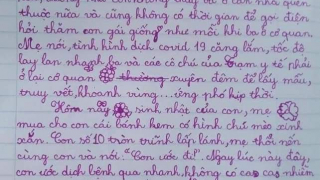 thuốc nữa và cũng không có thời gian để gọi điện
hỏi thăm con gái giống như mỗi khi ba ở cơ quan.
Mẹ nói, tình hình dịch covid 19 căng lắm, tốc độ
lay lan nhanh, ba và các cô chú của trạm y tế phải
ở lại cơ quan thường xuyên đêm để lấy mẫu,
truy vết, khoanh vùng....ứng phó kịp thời.
Hôm nay, sinh nhật của con, mẹ
mua cho con cái bánh kem có hình chú mèo xinh
xắn. Con số 10 tròn trĩnh lấp lánh, mẹ thổi nến
cùng con và nói: "Con ước đi". Ngay lúc này đây,
con ước dịch bệnh qua nhanh, không có ca nhiễm